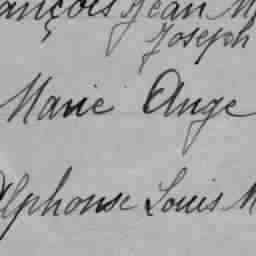 ançois Jean M
Joseph
Marie Ange
Alphonse Louis M